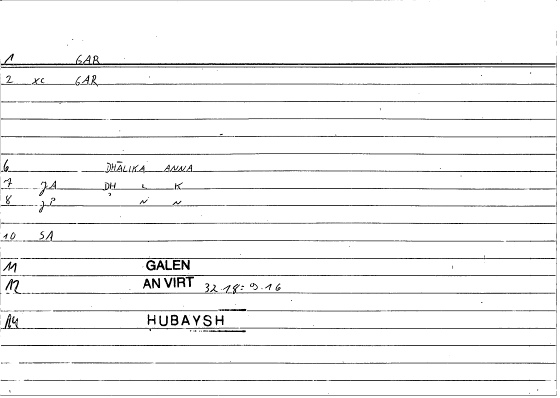 1 GAR
2 xc GAR
6 DHĀLIKA ANNA
7 JA DH L K
8 JP N N
10 SA
11 GALEN
12 AN VIRT 32.18:9.16
14 HUBAYSH